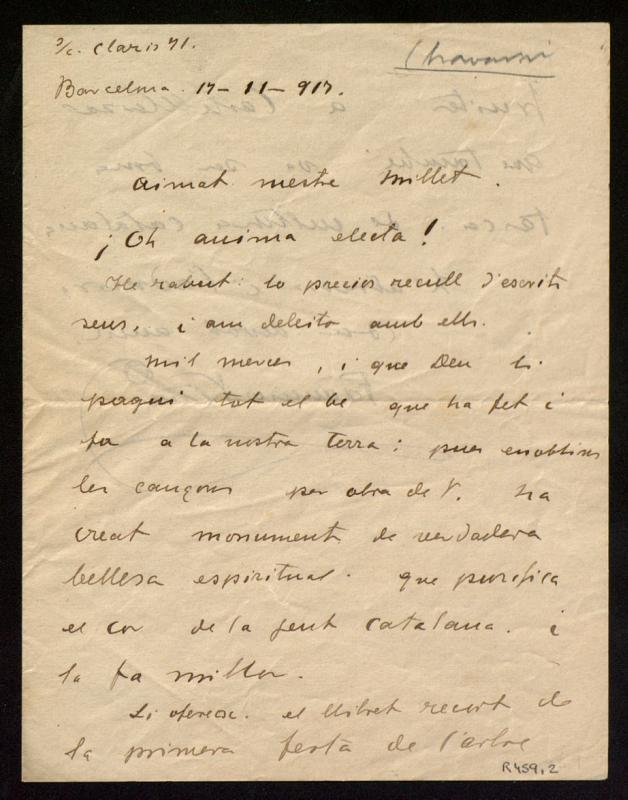 S/c. Claris 71.
Barcelona. 17-11-917.
aimat mestre Millet.
¡Oh anima electa!
He rabut: lo precios recull d'escrits
seus, i am deleito amb ells.
Mil merces, i que Deu li
pagui tot el be que ha fet i
fa a la nostra terra: pues enoblint
les cançons per obra de V. ha
creat monument de verdadera
bellesa espiritual. que purifica
el cor de la gent catalana. i
la fa millor.
Li oferesc. el llibret recort de
la primera festa de l'arbre
R459,2